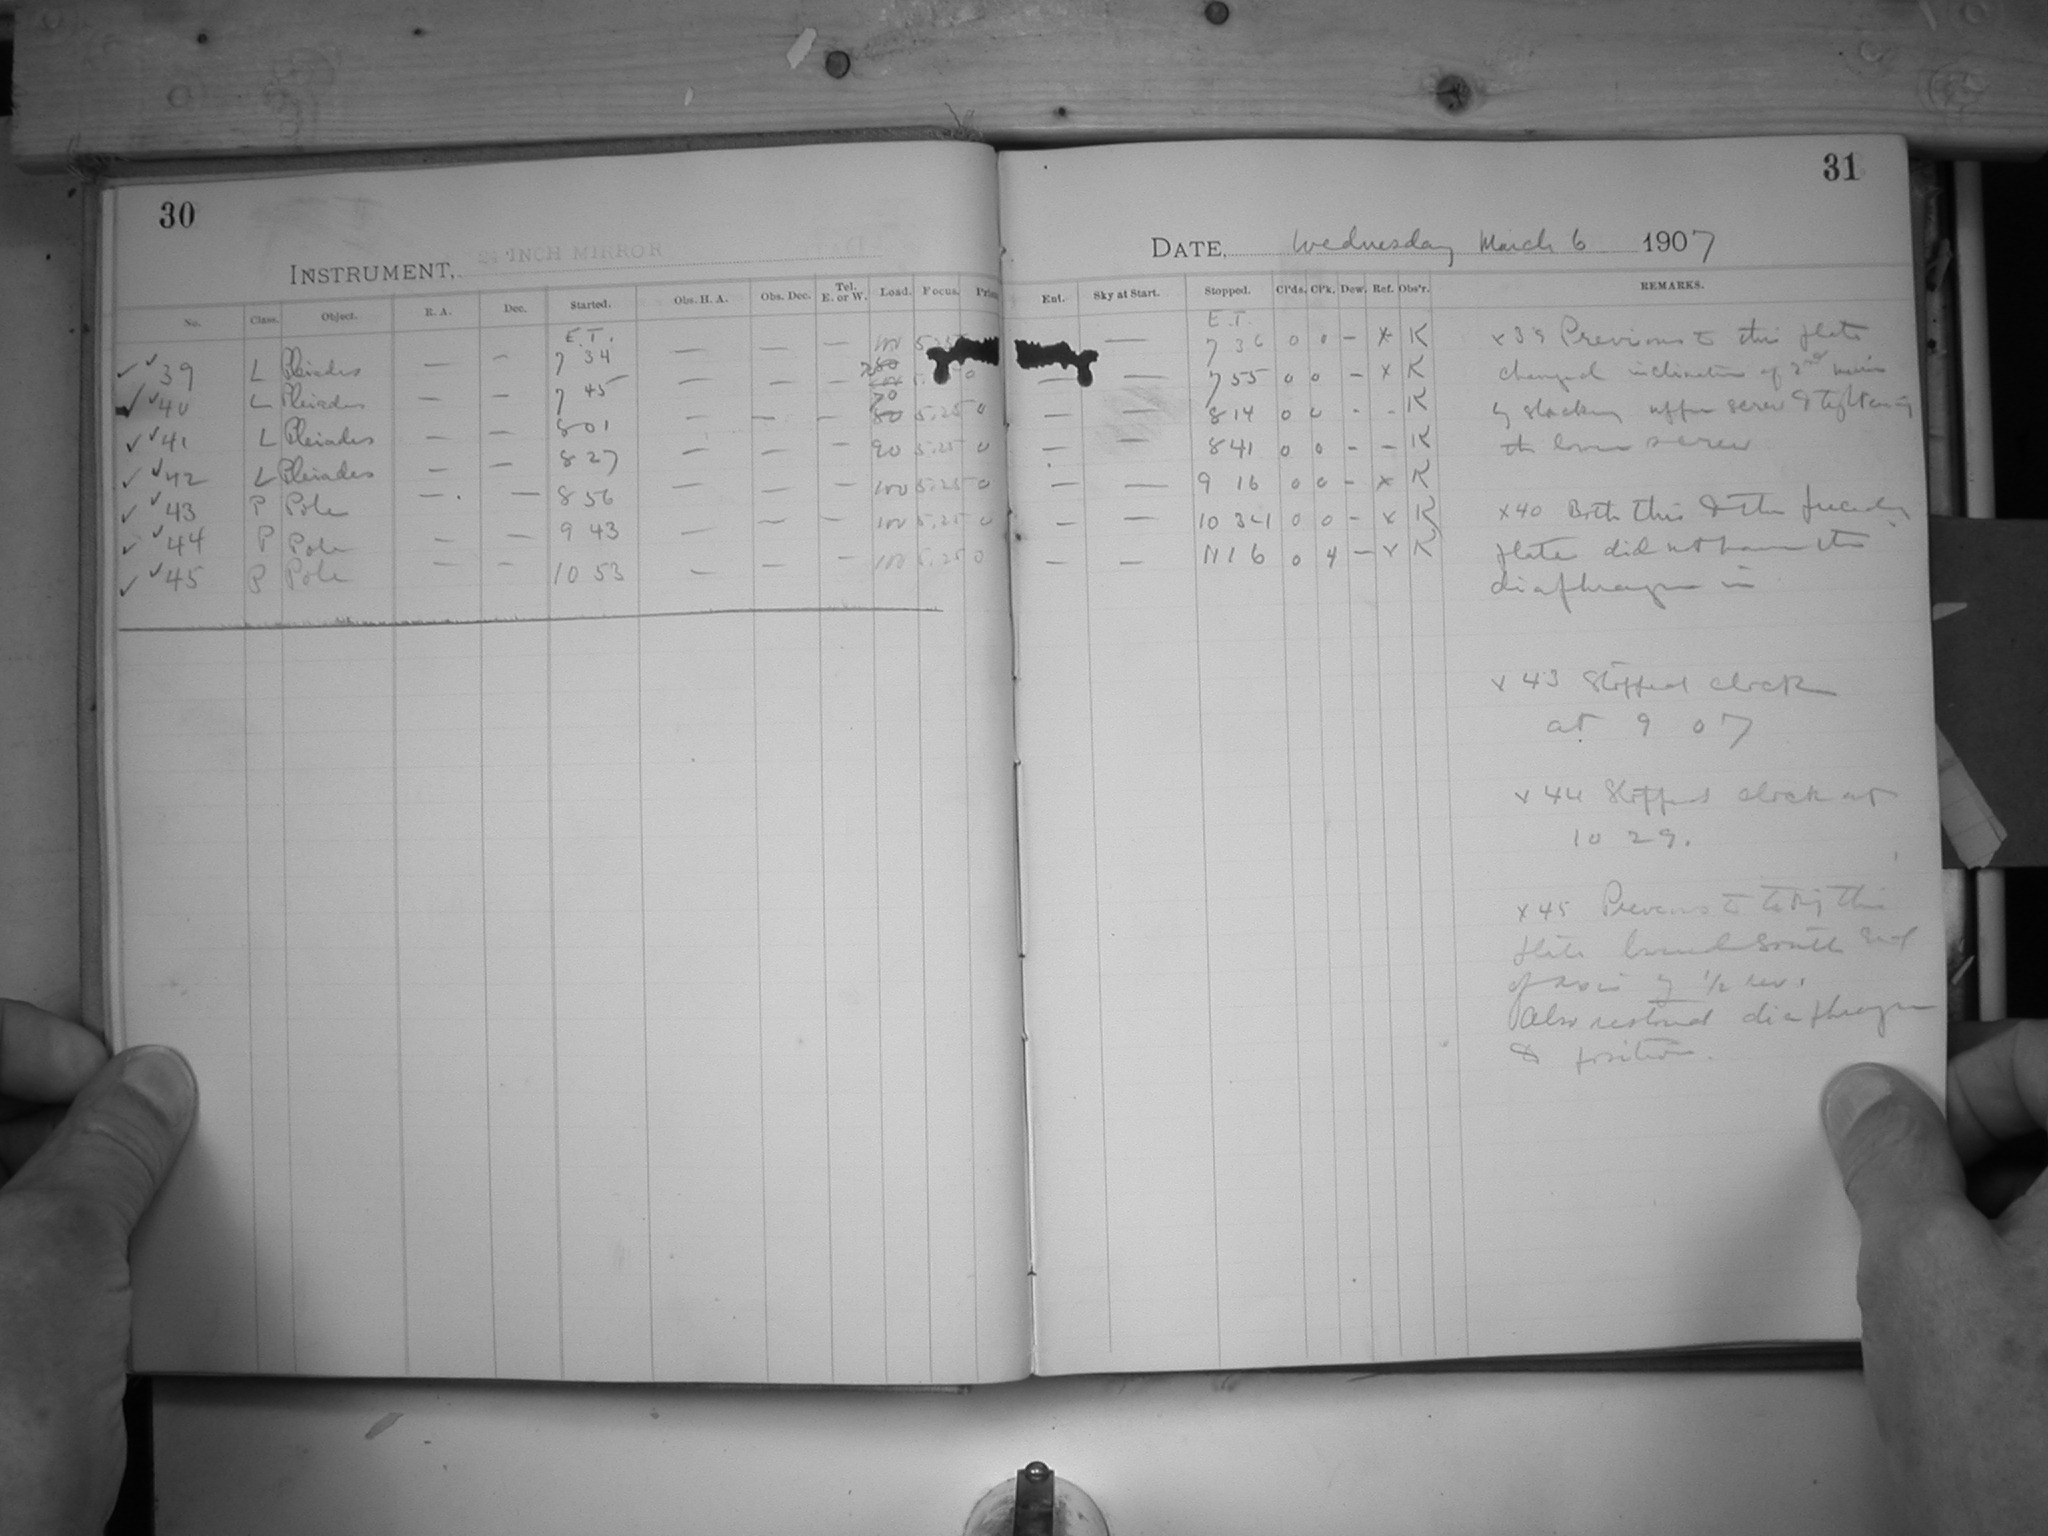 30
INSTRUMENT, 24 INCH MIRROR
No. Class. Object. R. A. Dec. Started. Obs. H. A. Obs. Dec. Tel. E. or W. Load. Focus.
E.T.
39 L Pleiades — — 7 34 — — — 100
40 L Pleiades — — 7 45 — — — 0
41 L Pleiades — — 8 01 — — — 80 5.25 0
42 L Pleiades — — 8 27 — — — 90 5.25 0
43 P Pole — — 8 56 — — — 100 5.25 0
44 P Pole — — 9 43 — — — 100 5.25 0
45 P Pole — — 10 53 — — — 100 5.25 0
31
DATE, Wednesday March 6 1907
Ent. Sky at Start. Stopped. Cl'ds. Cl'k. Dew. Ref. Obs'r. REMARKS.
E.T.
— 7 36 0 0 — x K
— — 7 55 0 0 — x K
— — 8 14 0 0 - - K
— — 8 41 0 0 - - K
— — 9 16 0 0 - x K
— — 10 34 0 0 - x K
— — 11 16 0 4 — x K
x39 Previous to this plate
changed inclination of 2nd mirror
by slacking upper screw & tightening
the lower screw
x40 Both this & the preceding
plate did not have the
diaphragm in
x43 Stopped clock
at 9 07
x44 Stopped clock at
10 29.
x45 Previous to taking this
plate South End
of axis by 1/2 rev.
Also restored diaphragm
to position.